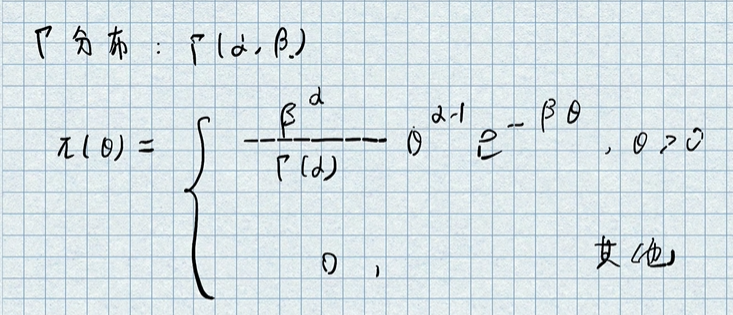 Γ分布：Γ(α,β)
π(θ) = { β^α / Γ(α) θ^(α-1) e^(-βθ), θ>0
0, 其他